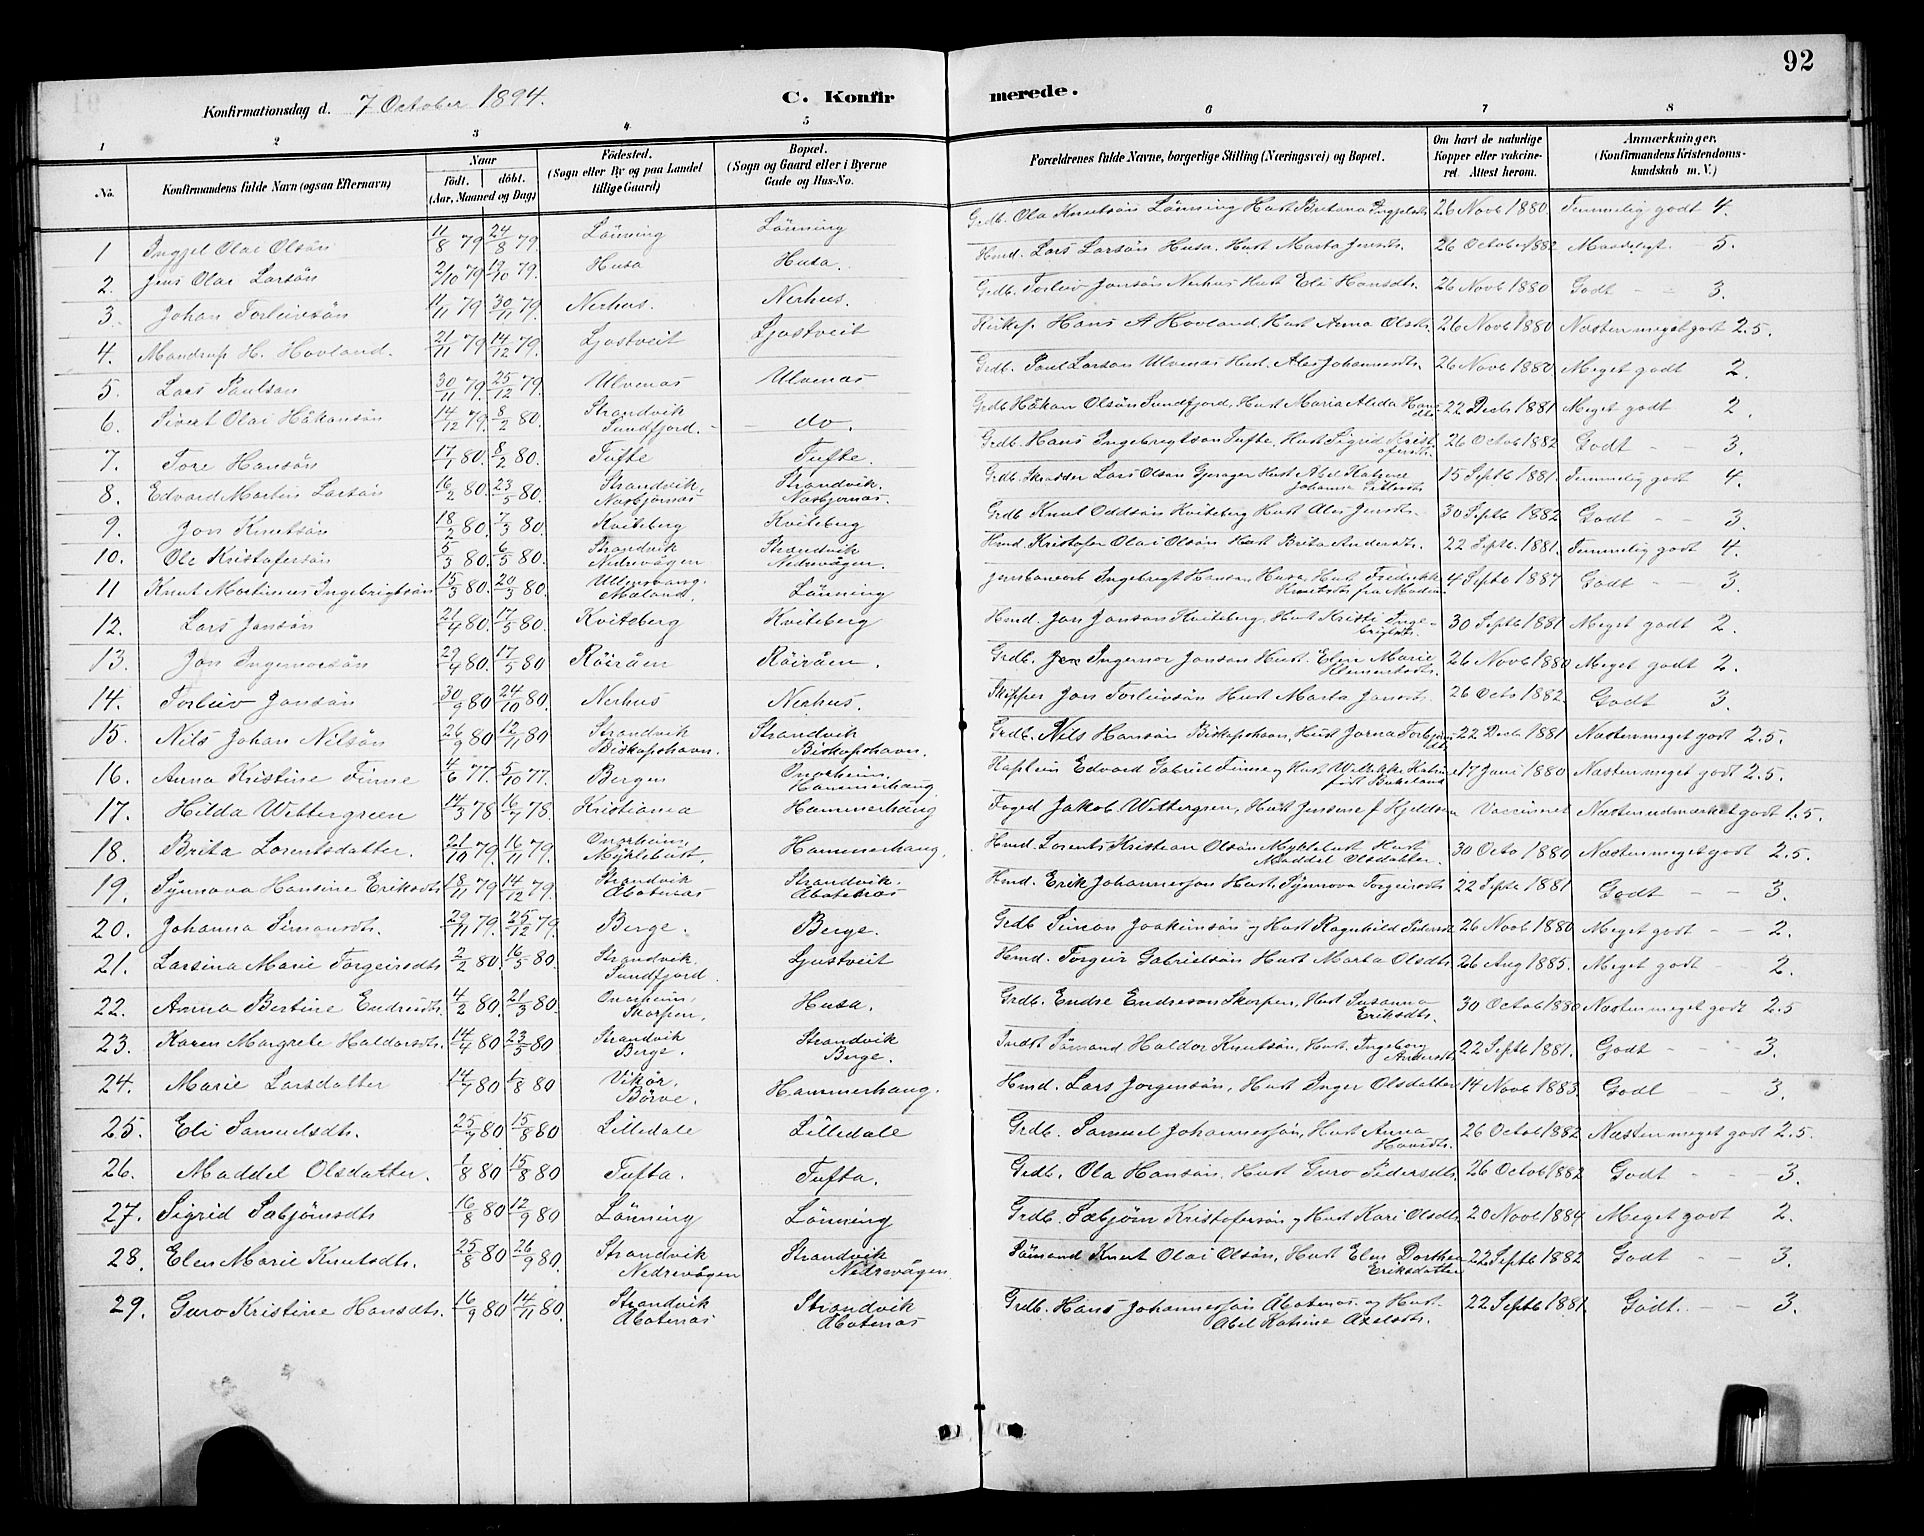 92
Konfirmationsdag d. 7 October 1894. C. Konfirmerede.
1 2 3 4 5 6 7 8
No. Konfirmandens fulde Navn (ogsaa Efternavn) Naar født. døbt. (Aar, Maaned og Dag) Fødested. (Sogn eller By og paa Landet tillige Gaard) Bopæl. (Sogn og Gaard eller i Byerne Gade og Hus-No. Forældrenes fulde Navne, borgerlige Stilling (Næringsvei) og Bopæl. Om havt de naturlige Kopper eller vakcineret. Attest herom. Anmærkninger, (Konfirmandens Kristendomskundskab m. V.)
1 Ingjel Olai Olsön 11/8 79 24/8 79. Lönning Lönning Grdb. Ola Knutsön Lönning Hust Britana 26 Novb 1880 Temmelig godt 4.
2. Jens Olai Larsön 2/10 79 19/10 79. Husa Husa. Hmd. Lars Larsön Husa. Hust Marta Jensdt. 26 October 1882 Maadeligt 5.
3. Johan Torleivsön 11/11 79 30/11 79 Nerhus. Nerhus. Grdb. Torleiv Jonsön Nerhus Hust Eli Hansdt. 26 Novb 1880 Godt - - 3.
4. Mandrup H. Hovland. 21/11 79 14/12 79. Ljostveit Ljostveit Kirkesr. Hans A Hovland. Hust Anna Olsdt. 26 Novb 1880 Næsten meget godt 2.5.
5. Lars Paulsön 30/11 79. 25/12 79. Ulvenæs Ulvenæs Grdb. Paul Larsön Ulvenæs Hust. Ales Johannesdt. 26 Novb 1880 Meget godt 2.
6. Sivert Olai Håkonsön 14/12 79. 8/2 80. Strandvik Sundfjord. - do. Grdb Håkon Olsön Sundfjord, Hust Maria Alida Hansdt. 22 Decb 1881 Meget godt 2.
7. Tore Hansön 17/1 80. 8/2 80. Tufte Tufte. Grdb. Hans Ingebrigtsön Tufte, Hust Sigrid Kristofersdt. 26 Octob 1882 Godt - 3.
8. Edvard Martin Larsön 16/2 80. 23/5 80. Strandvik. Næsbjörnæs Strandvik. Næsbjornæs. Grdb. Skrædder Lars Olsön Gjerager Hust Abel Katrine Johanna 15 Septb 1881 Temmelig godt 4.
9. Jon Knutsön 18/2 80. 7/3 80. Kviteberg Kviteberg Grdb Knut Oddsön Kviteberg Hust Ales Jensdt. 30 Septb 1882 Godt - - 3.
10. Ole Kristofersön 5/3 80 6/5 80. Strandvik Nedrevågen Strandvik Nedrevågen. Hmd. Kristofer Olai Olsön Hust Brita Andersdt. 22 Septb 1881. Temmelig godt 4.
11 Knut Martinus Ingebrigtsön 15/3 80. 20/3 80. Ullensvang. Mæland. Lönning Ingebrigt Hansön, Husa, Hust Fredrikke Knutsdt fra 4 Septb 1887 Godt - - 3.
12. Lars Jonsön 21/4 80. 17/5 80. Kviteberg Kviteberg Hmd. Jon Jonsön Kviteberg, Hust Kristi Ingebrigtsdt. 30 Septb 1881 Meget godt 2.
13. Jon Ingemorsön 29/4 80. 17/5 80 Röiråen Röiråen. Grdb. Ingemor Jonsön Hust. Elen Marie Klementsdt. 26 Novb 1880 Meget godt 2.
14. Torleiv Jonsön 30/9 80 24/10 80. Nerhus Nerhus. Skipper Jon Torleivsön Hust Marta Jonsdt. 26 Octb 1882 Godt 3.
15. Nils Johan Nilsön 26/9 80 12/11 80 Strandvik Biskopshavn. Strandvik Biskopshavn. Grdb. Nils Hansön Biskopshavn, Hust Jorna Torbjörnsdt. 22 Decb 1881 Næsten meget godt 2.5.
16. Anna Kristine Finne 4/6 77. 5/10 77. Bergen Onarheim. Hammerhaug. Kaptein Edvard Gabriel Finne og Hust Wilhikke Katrine født 17 Juni 1880 Næsten meget godt 2.5.
17. Hilda Wettergreen 14/3 78 16/7 78. Kristiania Hammerhaug Foged Jakob Wettergren, Hust Jensine f Kjeldsen Vaccineret Næsten udmærket godt 1.5.
18. Brita Lorentsdatter. 21/10 79. 16/11 79. Onarheim, Myklebust. Hammerhaug. Hmd. Lorents Kristian Olsön Myklebust Hust Maddel Olsdatter. 30 Octb 1880 Næsten meget godt 2.5.
19. Synnova Hansine Eriksdt. 18/11 79 14/12 79. Strandvik Aboternæs Strandvik. Aboteknæs Hmd. Erik Johannessön Hust. Synnova Torgeirsdt. 22 Septb 1881 Godt - - 3.
20. Johanna Simonsdt. 29/11 79. 25/12 79. Berge. Berge. Grdb Simon Joakimsön og Hust Ragnhild Pedersdt 26 Novb 1880 Meget godt - - 2.
21. Larsina Marie Torgeirsdt. 2/2 80. 16/5 80. Strandvik, Sundfjord. Ljostveit Hmd. Torgeir Gabrielsön Hust Marta Olsdt. 26 Aug 1885. Meget godt - - 2.
22. Anna Bertine Endresdt. 4/2 80. 21/3 80 Onarheim, Skorpen. Husa. Grdb. Endre Endresön Skorpen, Hust Susanna Eriksdt. 30 Octob 1880 Næsten meget godt 2.5
23. Karen Margrete Haldorsdt. 14/4 80 23/5 80 Strandvik Berge. Strandvik Berge. Indst Sömand Haldor Knutsön, Hust. Ingeborg Andersdt. 22 Septb 1881. Godt - - - 3.
24. Marie Larsdatter 14/7 80 1/8 80 Vikör. Börve. Hammerhaug. Hmd. Lars Jörgensön, Hust Inger Olsdatter 14 Novb 1883. Godt - - 3.
25. Eli Samuelsdt. 25/7 80 15/8 80 Lilledale Lilledale Grdb. Samuel Johannessön, Hust Anna Hansdt. 26 Octob 1882 Næsten meget godt 2.5.
26. Maddel Olsdatter. 1/8 80 15/8 80 Tufta. Tufta. Grdb. Ola Hansön, Hust Guro Pedersdt. 26 Octob 1882 Godt - 3.
27. Sigrid Sæbjörnsdt. 16/8 80 12/9 80 Lönning Lönning Grdb. Sæbjörn Kristofersön og Hust Kari Olsdt. 20 Novb 1884 Meget godt - 2.
28. Elen Marie Knutsdt. 25/8 80 26/9 80. Strandvik Nedrevågen Strandvik Nedrevågen Sömand Knut Olai Olsön, Hust Elen Dorthea Eriksdatter 22 Septb 1882 Godt - - 3.
29. Guro Kristine Hansdt. 16/9 80 14/11 80. Strandvik Aboternæs Strandvik Aboternæs Grdb. Hans Johannessön Aboternæs. og Hust Abel Katrine Axelsdt. 22 Septb 1881 Godt. - - 3.